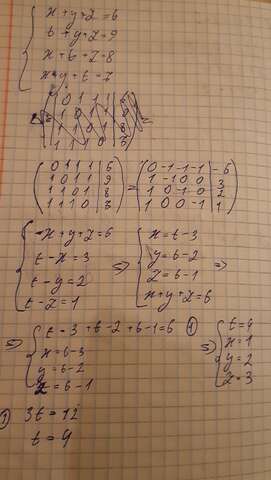 x + y + z = 6
t + y + z = 9
x + t + z = 8
x + y + t = 7
( 0 1 1 1 | 6
1 0 1 1 | 9
1 1 0 1 | 8
1 1 1 0 | 7 ) = ( 0 -1 -1 -1 | -6
1 -1 0 0 | 3
1 0 -1 0 | 2
1 0 0 -1 | 1 )
x + y + z = 6
t - x = 3
t - y = 2
t - z = 1
=> x = t - 3
y = t - 2
z = t - 1
x + y + z = 6
=>
=> t - 3 + t - 2 + t - 1 = 6 ①
x = t - 3
y = t - 2
z = t - 1
=> t = 4
x = 1
y = 2
z = 3
① 3t = 12
t = 4